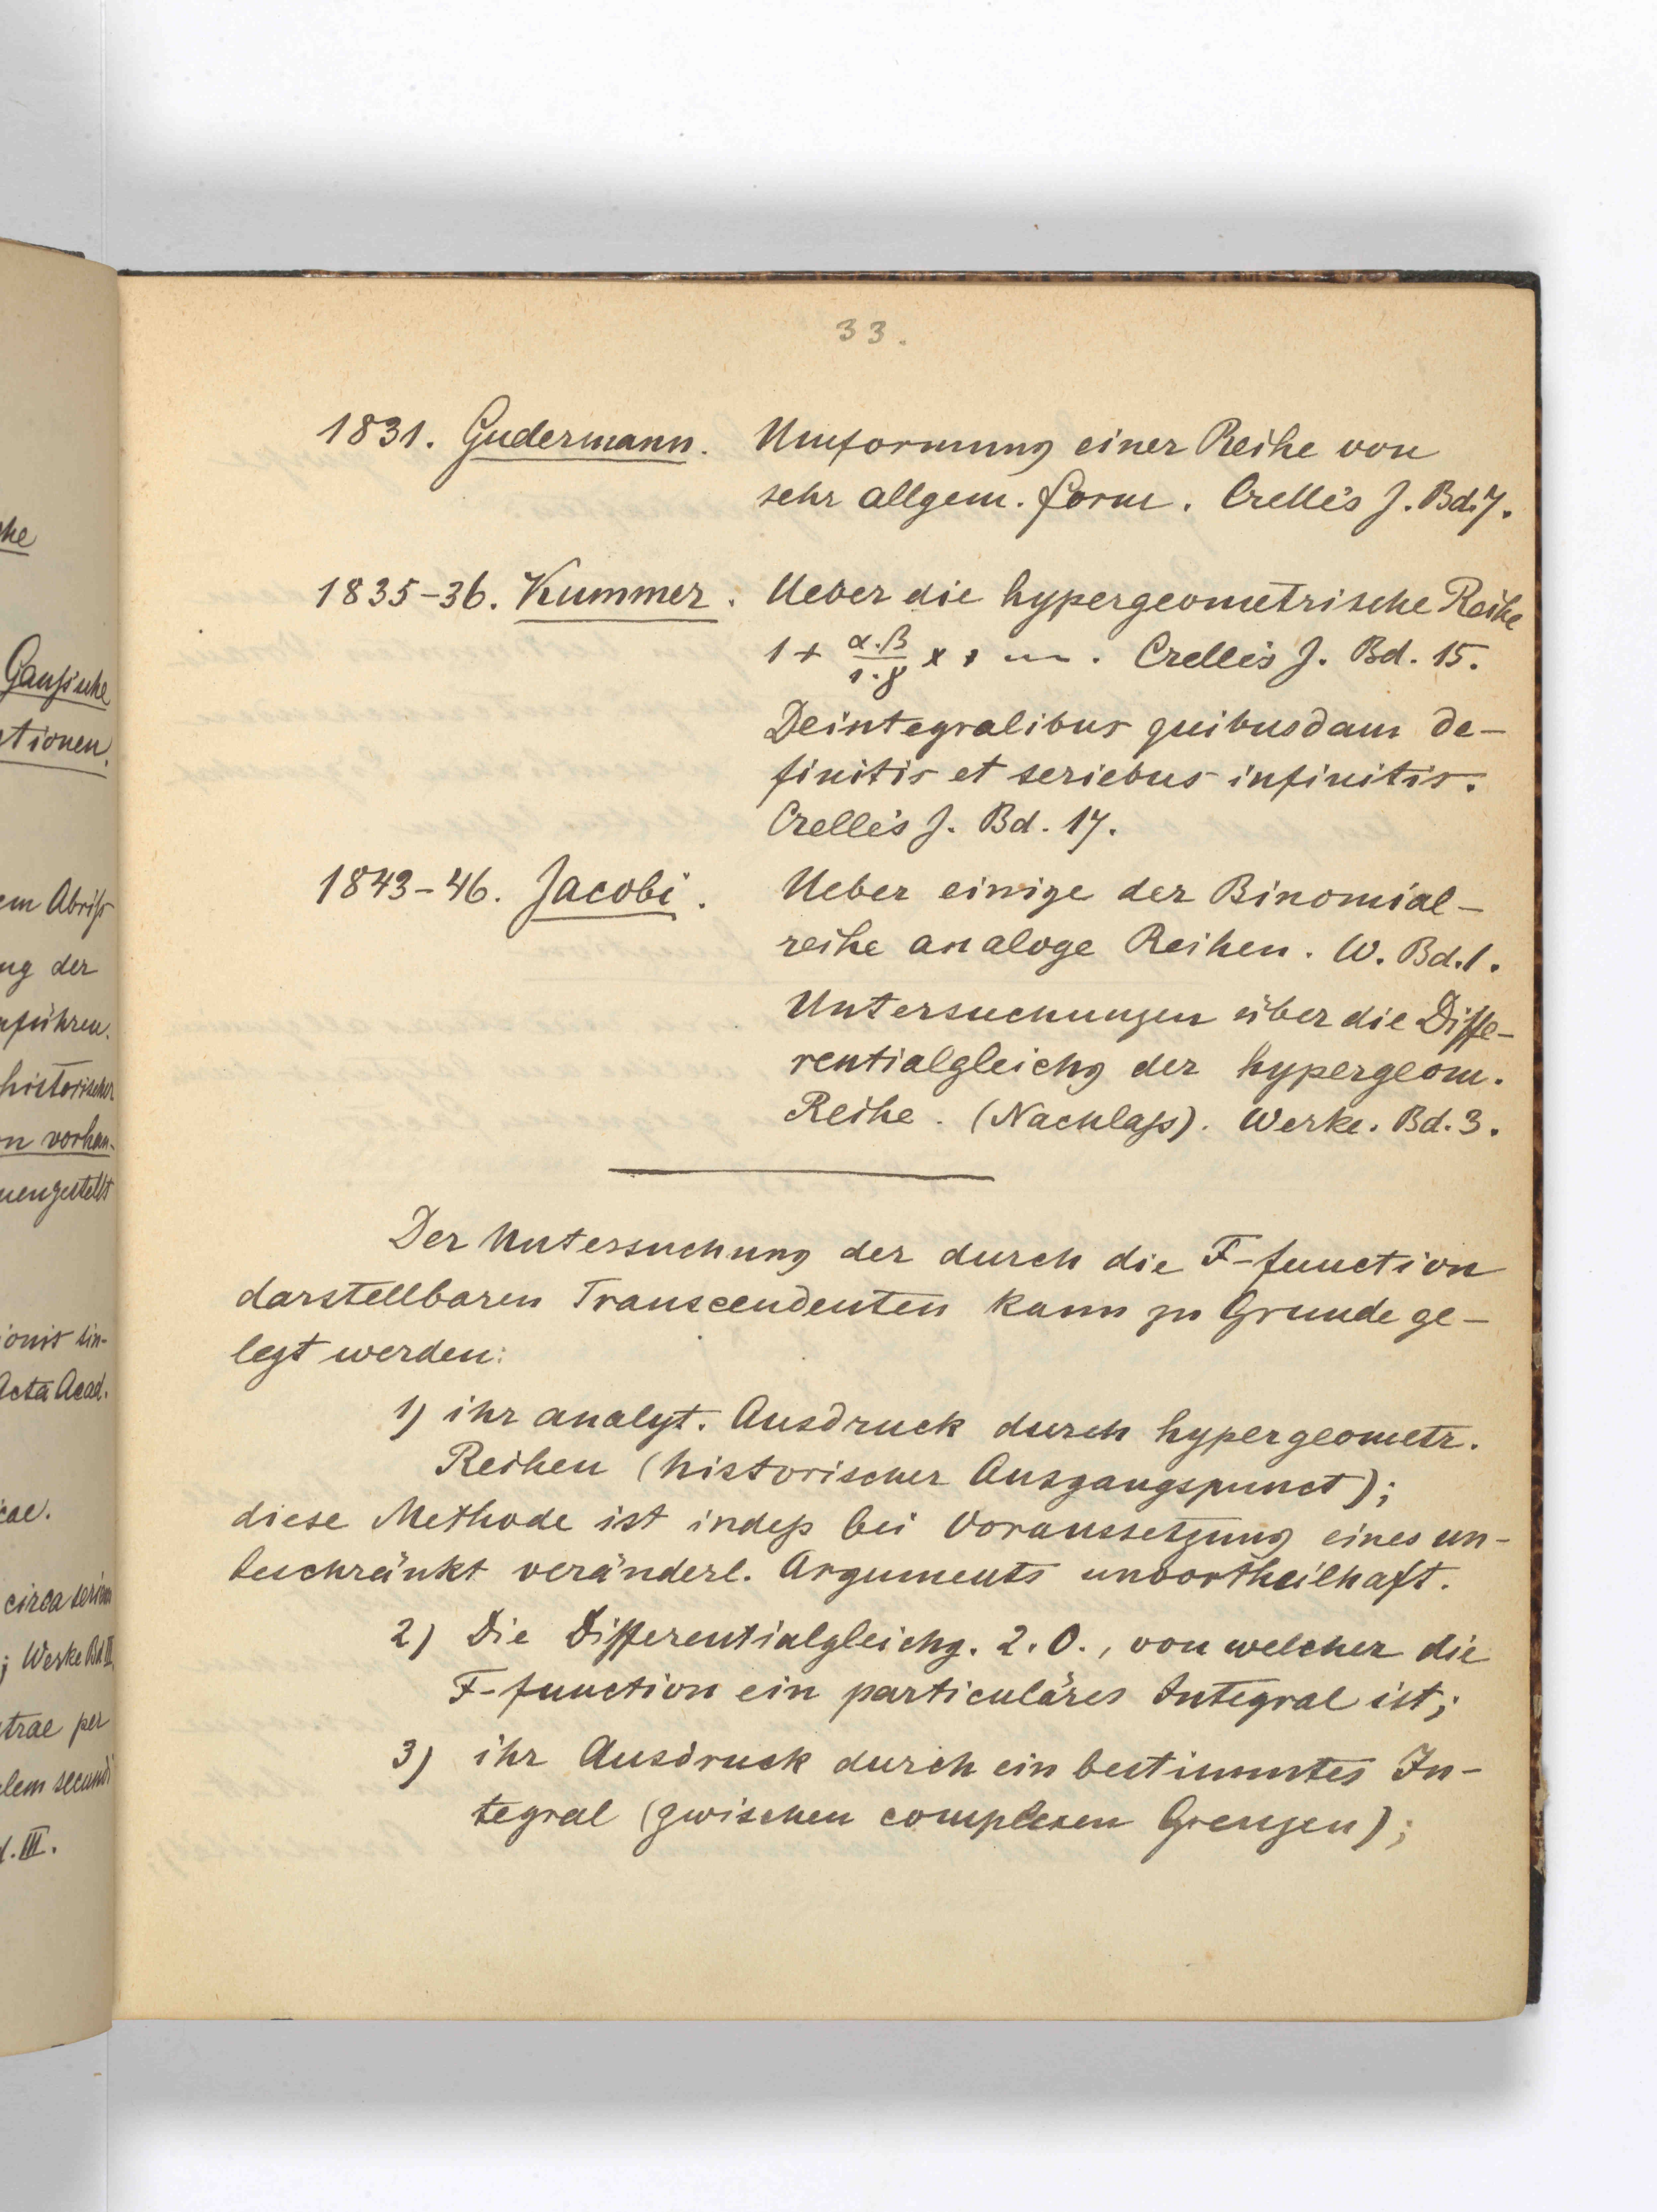 33.
1831. Gudermann. Umformung einer Reihe von
sehr allgem. Form. Crelle's J. Bd. 7.
1835-36. Kummer. Ueber die hypergeometrische Reihe
1 + α.β/1.γ x + ... . Crelle's J. Bd. 15.
De integralibus quibusdam de-
finitis et seriebus infinitis.
Crelle's J. Bd. 17.
1843-46. Jacobi. Ueber einige der Binomial-
reihe analoge Reihen. W. Bd. 1.
Untersuchungen über die Diffe-
rentialgleichg der hypergeom.
Reihe. (Nachlaß). Werke. Bd. 3.
Der Untersuchung der durch die F-function
darstellbaren Transcendenten kann zu Grunde ge-
legt werden:
1) ihr analyt. Ausdruck durch hypergeometr.
Reihen (historischer Ausgangspunct);
diese Methode ist indeß bei Voraussetzung eines un-
beschränkt veränderl. Arguments unvortheilhaft.
2) Die Differentialgleichg. 2. O., von welcher die
F-function ein particuläres Integral ist;
3) ihr Ausdruck durch ein bestimmtes In-
tegral (zwischen complexen Grenzen);